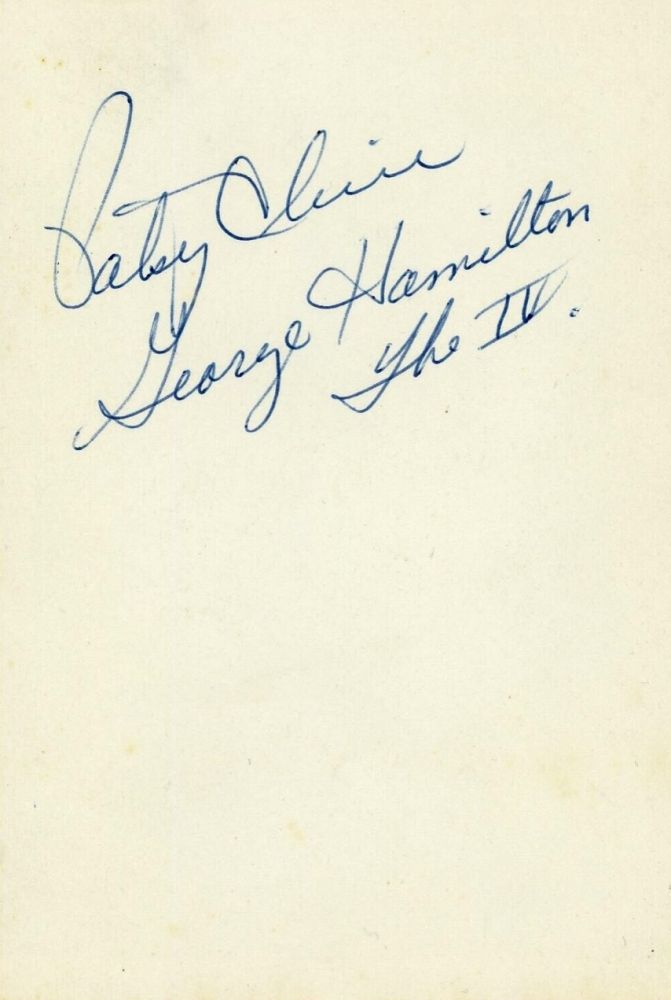 Patsy Cline
George Hamilton
The IV.